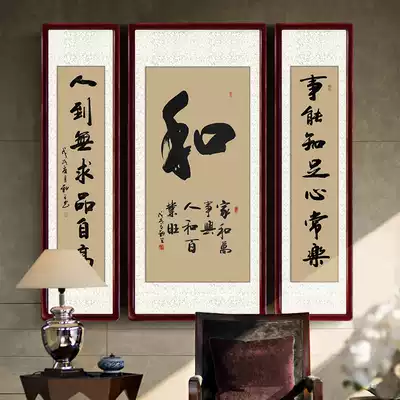 事能知足心常樂
和
家和萬
事興
人和百
業旺
人到無求品自高